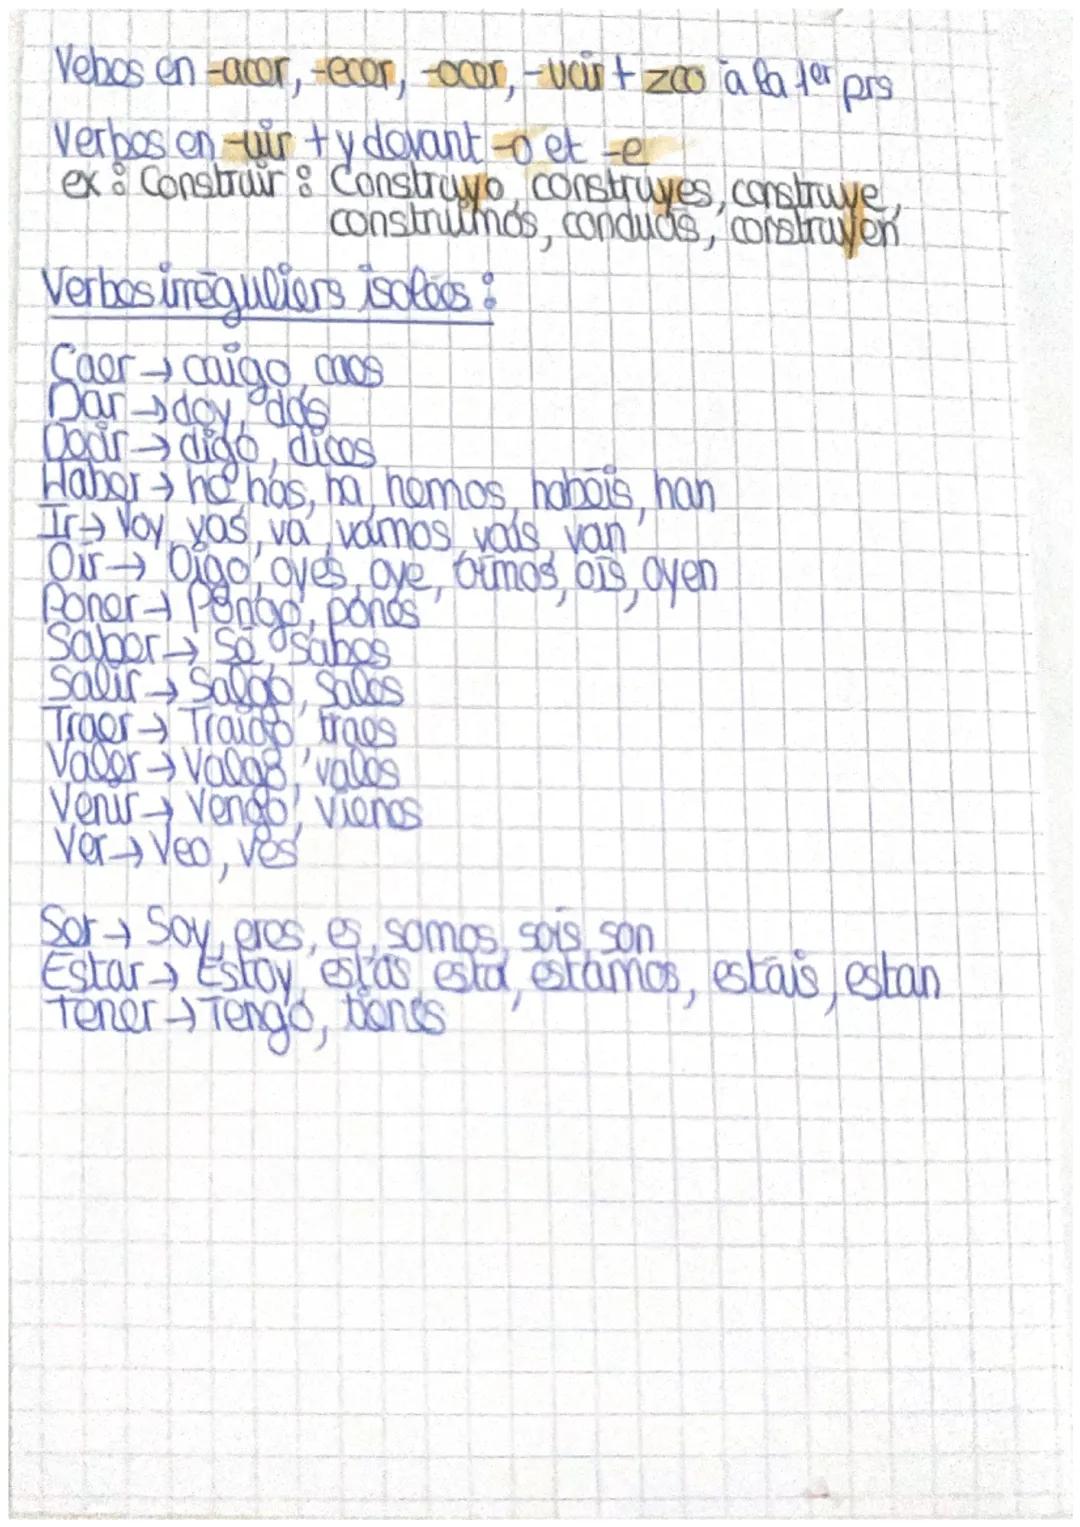 Vebos en -acer, -ecer, -ocer, -ucir + zco à la 1er prs
Verbos en -uir + y devant -o et -e
ex : Construir : Construyo, construyes, construye,
construimos, conducís, construyen
Verbes irréguliers isolées :
Caer → caigo, caes
Dar → doy, das
Decir → digo, dices
Haber → he has, ha, hemos, habéis, han
Ir → Voy, vas, va, vamos, vais, van
Oir → Oigo, oyes, oye, oímos, oís, oyen
Poner → Pongo, pones
Saber → Sé, sabes
Salir → Salgo, sales
Traer → Traigo, traes
Valer → Valgo, vales
Venir → Vengo, vienes
Ver → Veo, ves
Ser → Soy, eres, es, somos, sois, son
Estar → Estoy, estás, está, estamos, estáis, estan
Tener → Tengo, tienes